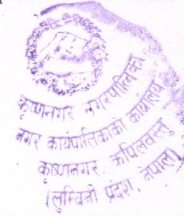 कृष्णनगर नगरपालिका
नगर कार्यपालिकाको कार्यालय
कृष्णनगर, कपिलवस्तु
लुम्बिनी प्रदेश, नेपाल